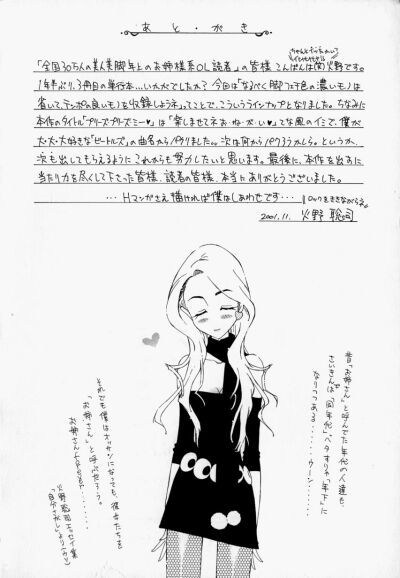 あ と ・ が き
「全国30万人の美人美脚年上のお姉様系OL読者」の皆様こんばんは(笑)火野です。
1年半ぶり、3冊目の単行本…いかがでしたか? 今回は「なるべく脚フェチ色の濃いモノは
省いて、テンポの良いモノを収録しようネ」ってことで、こういうラインナップとなりました。ちなみに
本作のタイトル「プリーズ・プリーズ・ミー♥」は「楽しませてネ お・ね・が・い♥」てな風のイミで、僕が
大・大・大好きな「ビートルズ」の曲名からパクりました。次は何からパクろうかしら。というか、
次も出してもらえるようにこれからも努力したいと思います。最後に、本作を出すに
当たり力を尽くして下さった皆様、読者の皆様、本当にありがとうございました。
…Hマンガさえ描ければ僕はしあわせです… ロックをききながらネ。
2001.11. 火野 聡司
昔「お姉さん」と呼んでた年代の人達も、
さいきんは「同年代」、ヘタすりゃ「年下」に
なりつつある……ウーン……
それでも僕はオッサンになっても、彼女たちを
「お姉さん」と呼ぶだろう。
お姉さんよ永遠に……
火野聡司エッセイ集
「自分さがし」より(ウソ)